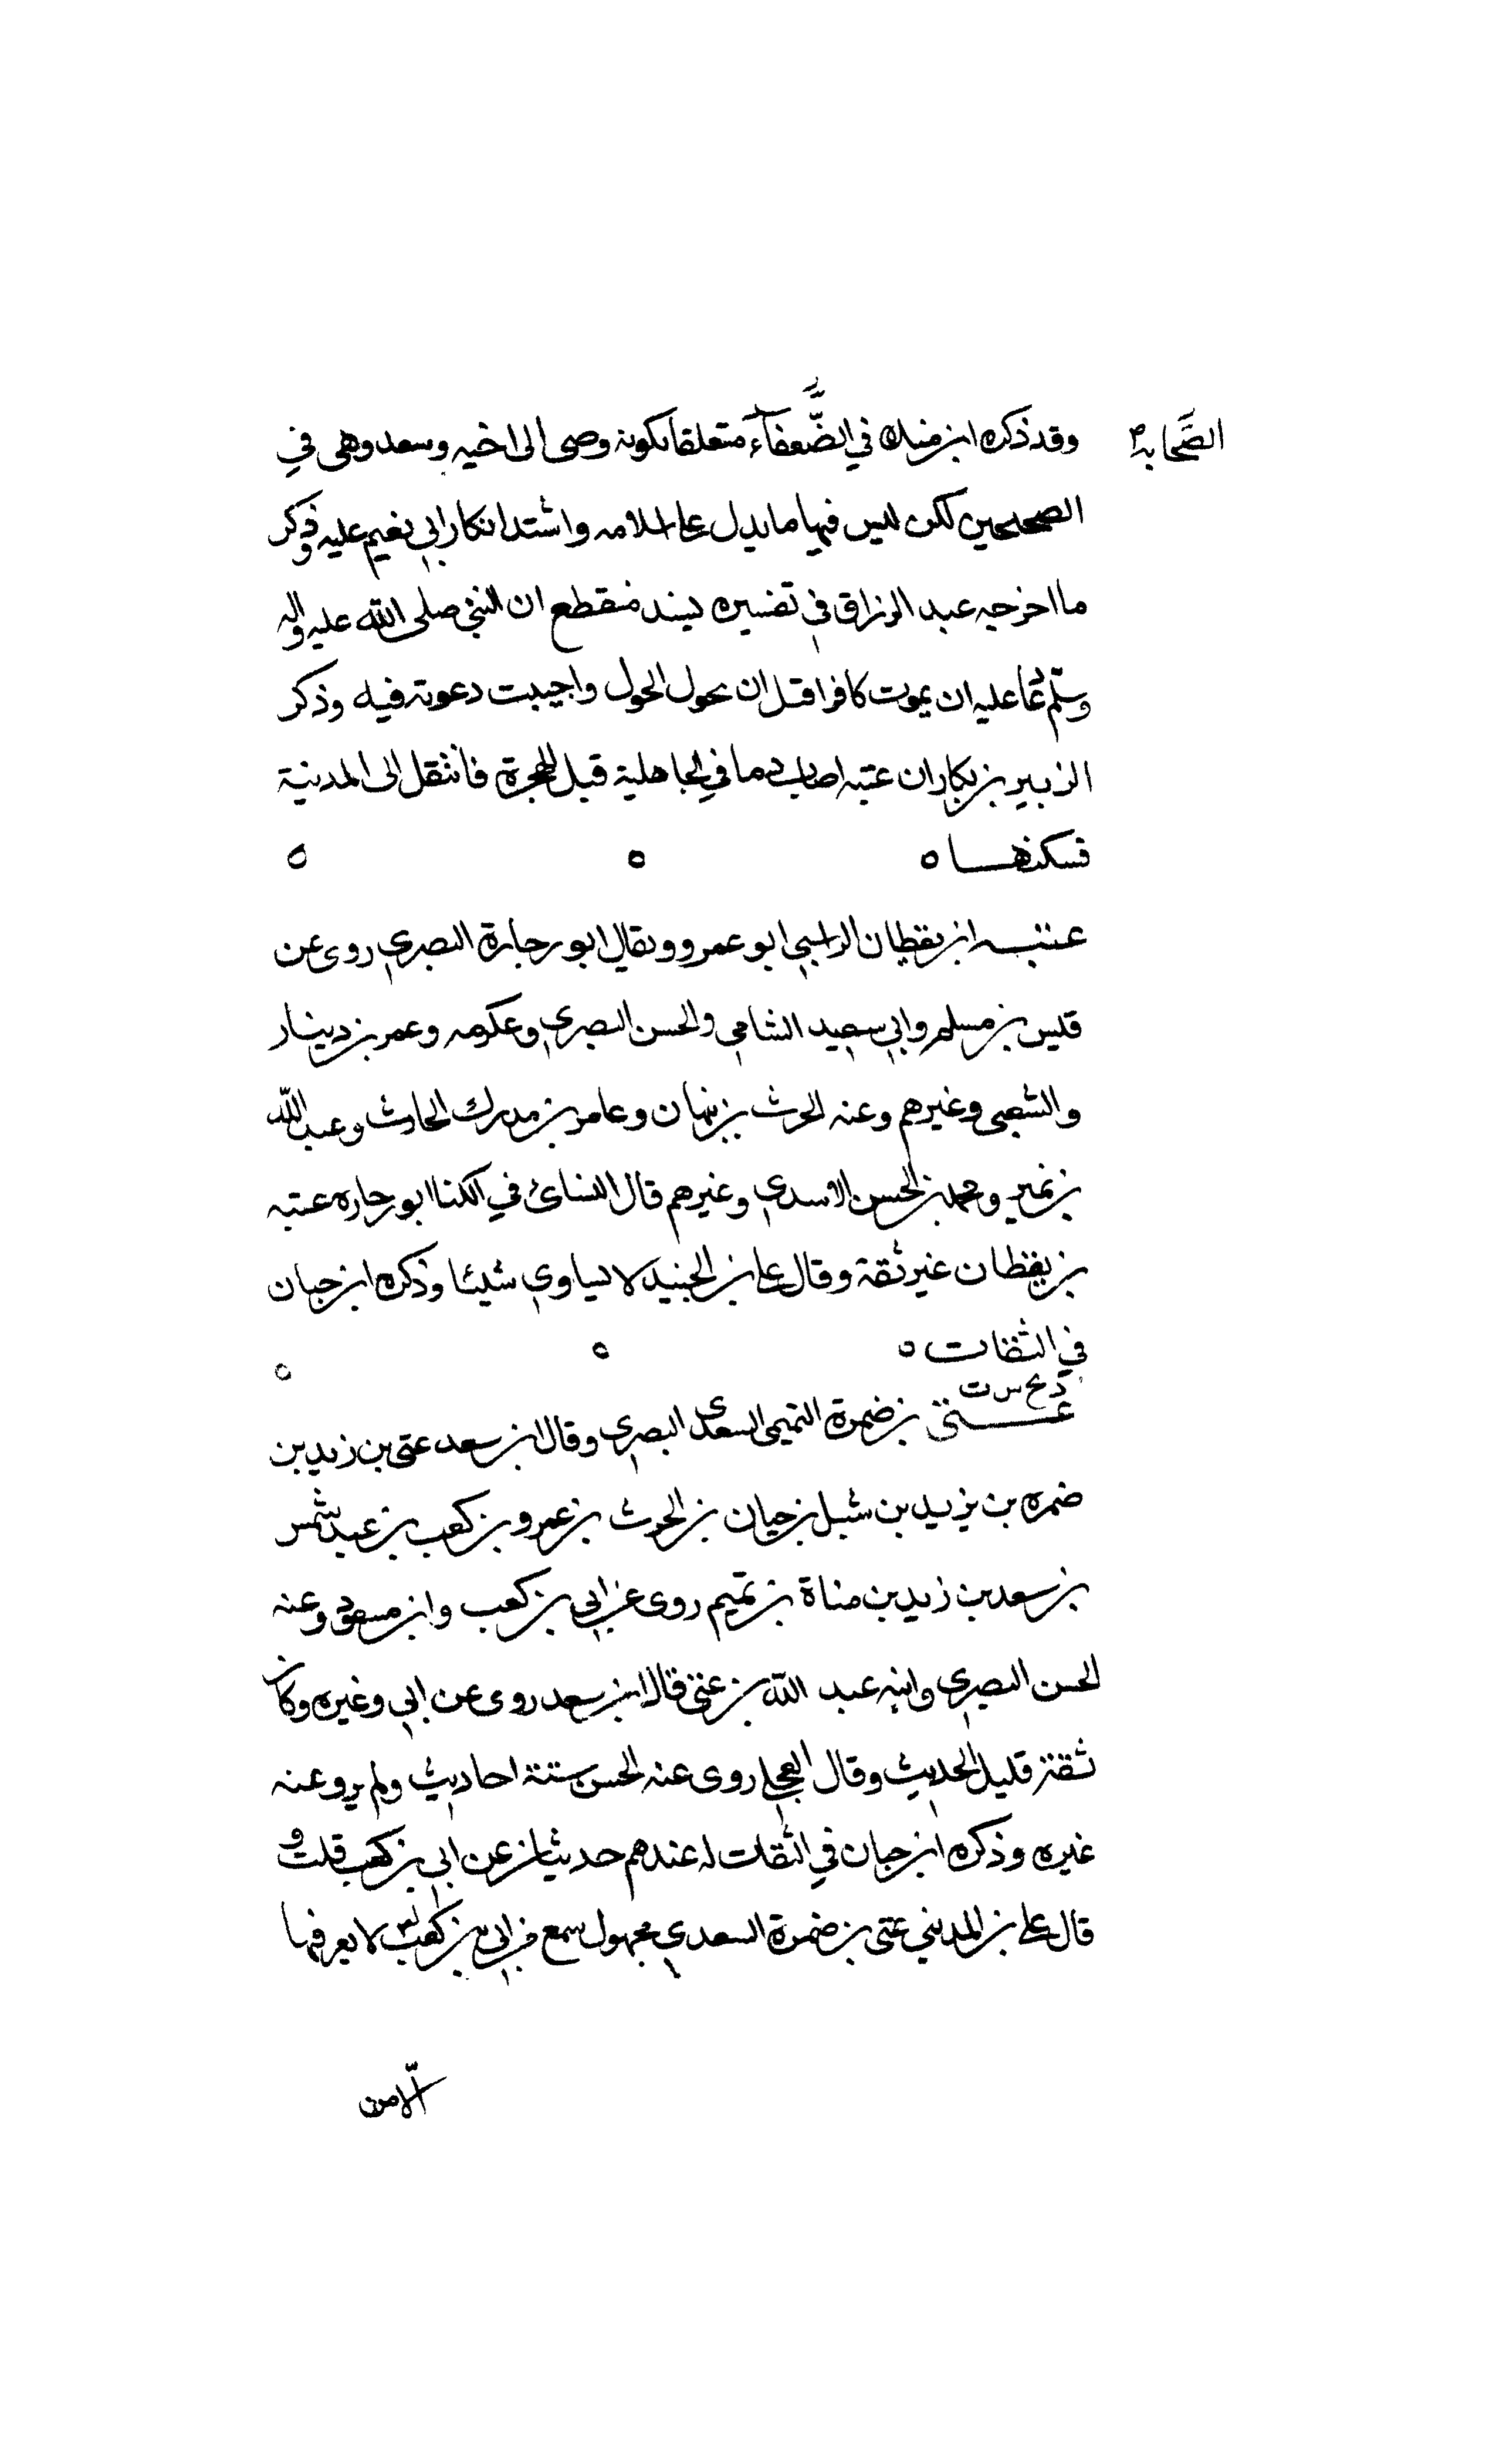 الصحابة
وقد ذكره ابن منده في الضعفاء متعلقا بكونه وصى الى اخيه وسعد وهى في
الصحيحين لكن ليس فيها ما يدل على اسلامه واشتد انكار ابي نعيم عليه وذكر
ما اخرجه عبد الرزاق في تفسيره بسند منقطع ان النبي صلى الله عليه واله
وسلم دعا عليه ان يموت كافرا قبل ان يحول الحول واجيبت دعوته فيه وذكر
الزبير بن بكار ان عتبه اصاب دما في الجاهلية قبل الهجرة فانتقل الى المدينة
فسكنها ه
عتبه ابن يقظان الراسبي ابو عمرو ويقال ابو رحارة البصري روى عن
قيس بن مسلم وابي سعيد الشامي والحسن البصري وعكرمه وعمر بن دينار
والشعبي وغيرهم وعنه الحرث بن نبهان وعامر بن مدرك الحارث وعبد الله
بن نمير ومحمد بن الحسن الاسدي وغيرهم قال النسائ في الكنا ابو رحاره عتبه
بن يقظان غير ثقة وقال على بن الجنيد لا يساوي شيئا وذكره ابن حبان
في الثقات ه
د بخ س ت
عتى بن ضمرة التميمى السعدى البصري وقال ابن سعد عتى بن زيد بن
ضمره بن يزيد بن شبل بن حيان بن الحرث بن عمرو بن كعب بن عبد شمس
بن سعد بن زيد بن مناة بن تميم روى عن ابي بن كعب وابن مسعود وعنه
الحسن البصري وابنه عبد الله بن عتى قال ابن سعد روى عن ابي وغيره وكان
ثقة قليل الحديث وقال العجلى روى عنه الحسن ستة احاديث ولم يرو عنه
غيره وذكره ابن حبان في الثقات له عندهم حديثان عن ابي بن كعب قلت و
قال على بن المديني عتى بن ضمرة السعدي مجهول سمع من ابي بن كعب لا يعرفها
الا من